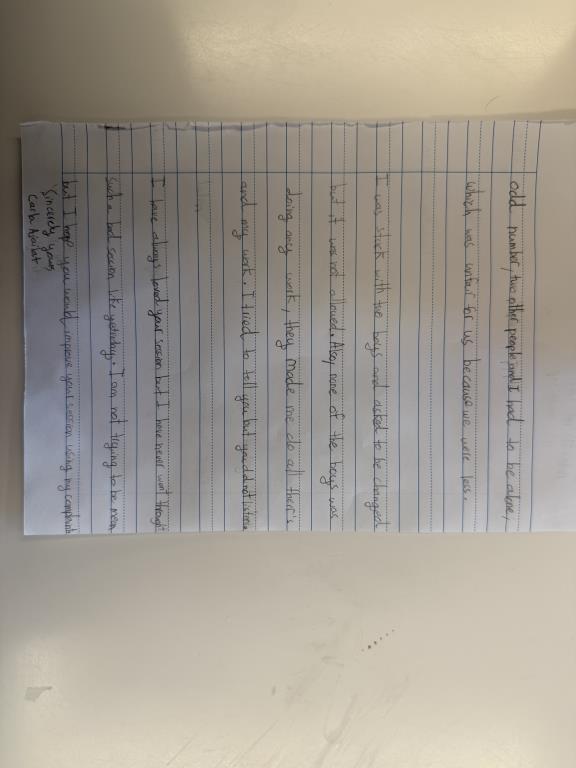 odd number, two other people and I had to be alone,
which was unfair for us because we were less.
I was stuck with two boys and asked to be changed
but it was not allowed. Also, none of the boys was
doing any work, they made me do all their's
and my work. I tried to tell you but you did not listen
I have always loved your session but I have never went through
such a bad session like yesterday. I am not trying to be mean
but I hope you would improve your session using my complaint
Sincerely yours
Carla